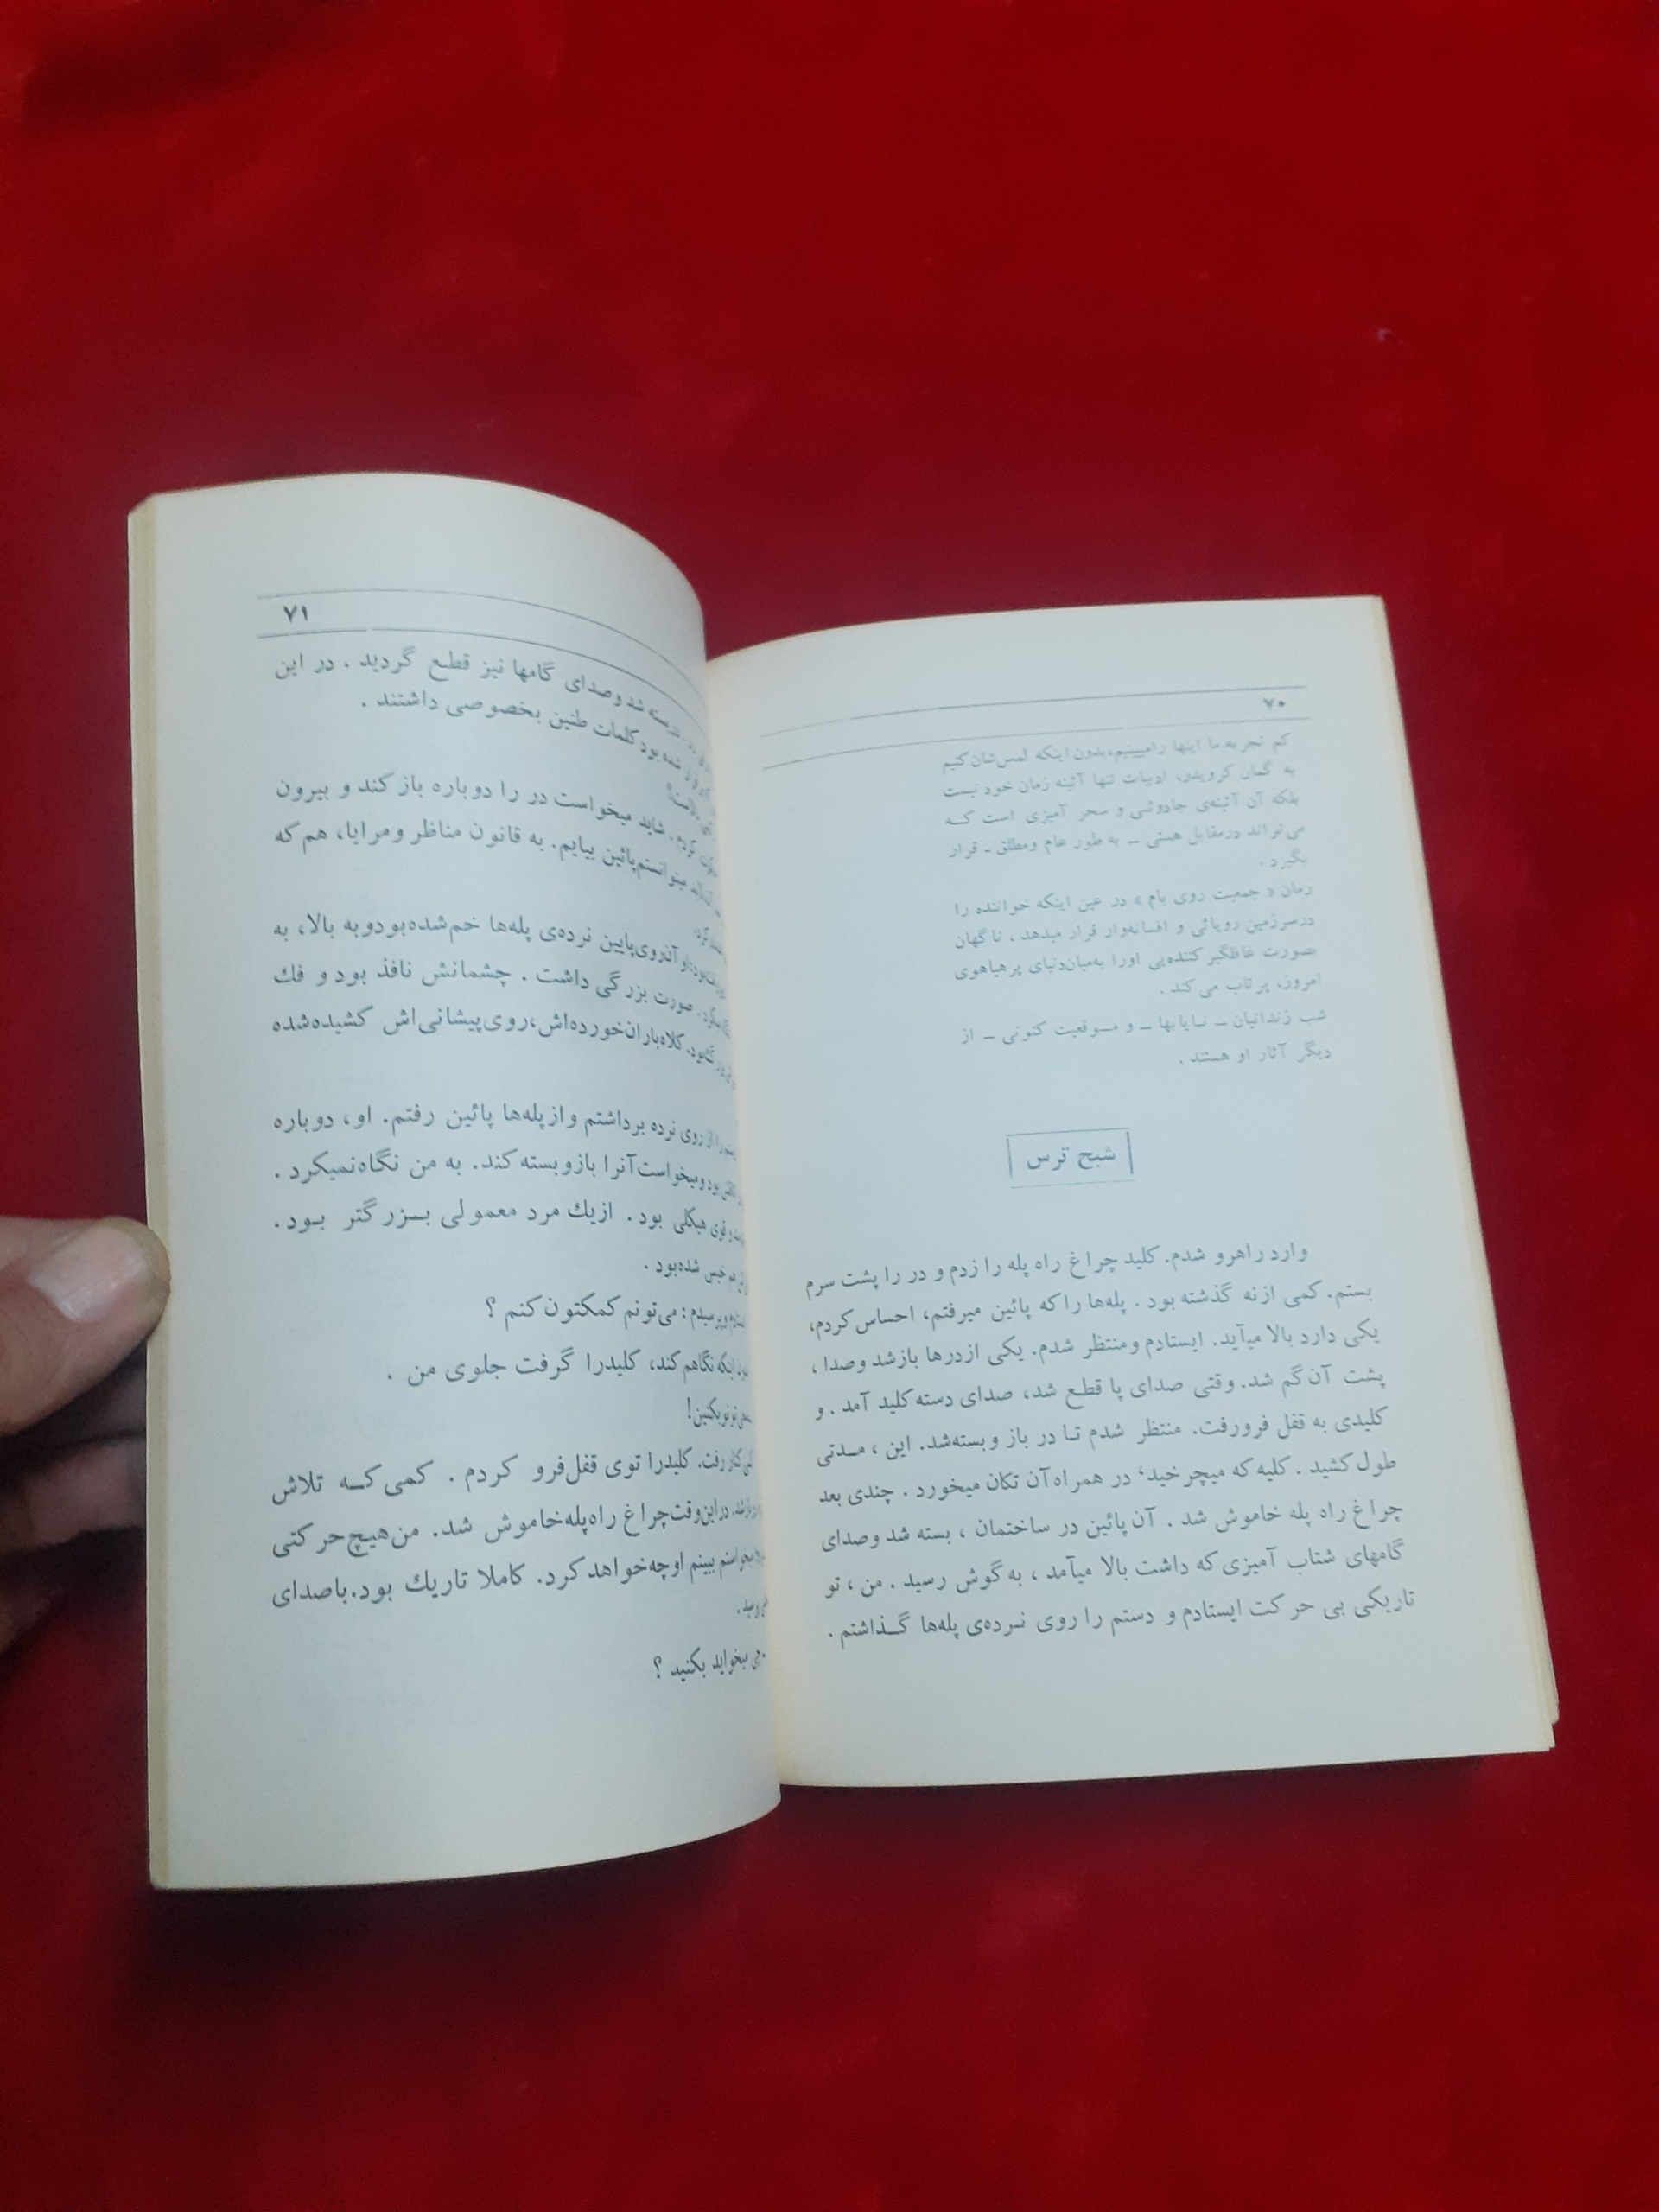 ۷۰
کم تجربه.ما اینها رامیبینیم،بدون اینکه لمس‌شان‌کنیم
به گمان کرویدر، ادبیات تنها آئینه زمان خود نیست
بلکه آن آئینه‌ی جادوئی و سحر آمیزی است که
می‌تواند درمقابل هستی ــ به طور عام ومطلق ـ قرار
بگیرد .
رمان « جمعیت روی بام » در عین اینکه خواننده را
درسرزمین رویائی و افسانه‌وار قرار میدهد ، ناگهان
بصورت غافلگیر کننده‌یی اورا به‌میان‌دنیای پرهیاهوی
امروز، پرتاب می‌کند .
شب زندانیان ــ نایابها ــ و موقعیت کنونی ــ از
دیگر آثار او هستند .
شبح ترس
وارد راهرو شدم. کلید چراغ راه پله را زدم و در را پشت سرم
بستم. کمی ازنه گذشته بود . پله‌ها راکه پائین میرفتم، احساس کردم،
یکی دارد بالا میآید. ایستادم ومنتظر شدم. یکی ازدرها بازشد وصدا ،
پشت آن گم شد. وقتی صدای پا قطع شد، صدای دسته کلید آمد . و
کلیدی به قفل فرورفت. منتظر شدم تا در باز وبسته‌شد. این ، مدتی
طول کشید . کلیه که میچرخید، در همراه آن تکان میخورد . چندی بعد
چراغ راه پله خاموش شد . آن پائین در ساختمان ، بسته شد وصدای
گامهای شتاب آمیزی که داشت بالا میآمد ، به گوش رسید . من ، تو
تاریکی بی حرکت ایستادم و دستم را روی نرده‌ی پله‌ها گذاشتم .
۷۱
بسته شد وصدای گامها نیز قطع گردید . در این
شده بود کلمات طنین بخصوصی داشتند .
کردم . شاید میخواست در را دوباره باز کند و بیرون
میتوانستم‌پائین بیایم. به قانون مناظر ومرایا، هم که
او آن‌روی‌پایین نرده‌ی پله‌ها خم‌شده‌بودوبه بالا، به
صورت بزرگی داشت . چشمانش نافذ بود و فك
کلاه‌باران‌خورده‌اش،روی‌پیشانی‌اش کشیده‌شده
از روی نرده برداشتم وازپله‌ها پائین رفتم. او، دوباره
بود ومیخواست‌آنرا بازوبسته‌کند. به من نگاه‌نمیکرد .
قوی هیکلی بود . ازیك مرد معمولی بزرگتر بود.
خیس شده‌بود .
وپرسیدم : می‌تونم کمکتون کنم ؟
اینکه نگاهم کند، کلیدرا گرفت جلوی من .
بکنین!
کنار رفت. کلیدرا توی قفل‌فرو کردم . کمی‌که تلاش
دراین‌وقت‌چراغ راه‌پله‌خاموش شد. من‌هیچ‌حرکتی
میخواستم ببینم اوچه‌خواهد کرد. کاملا تاریك بود.باصدای
چی میخواید بکنید ؟